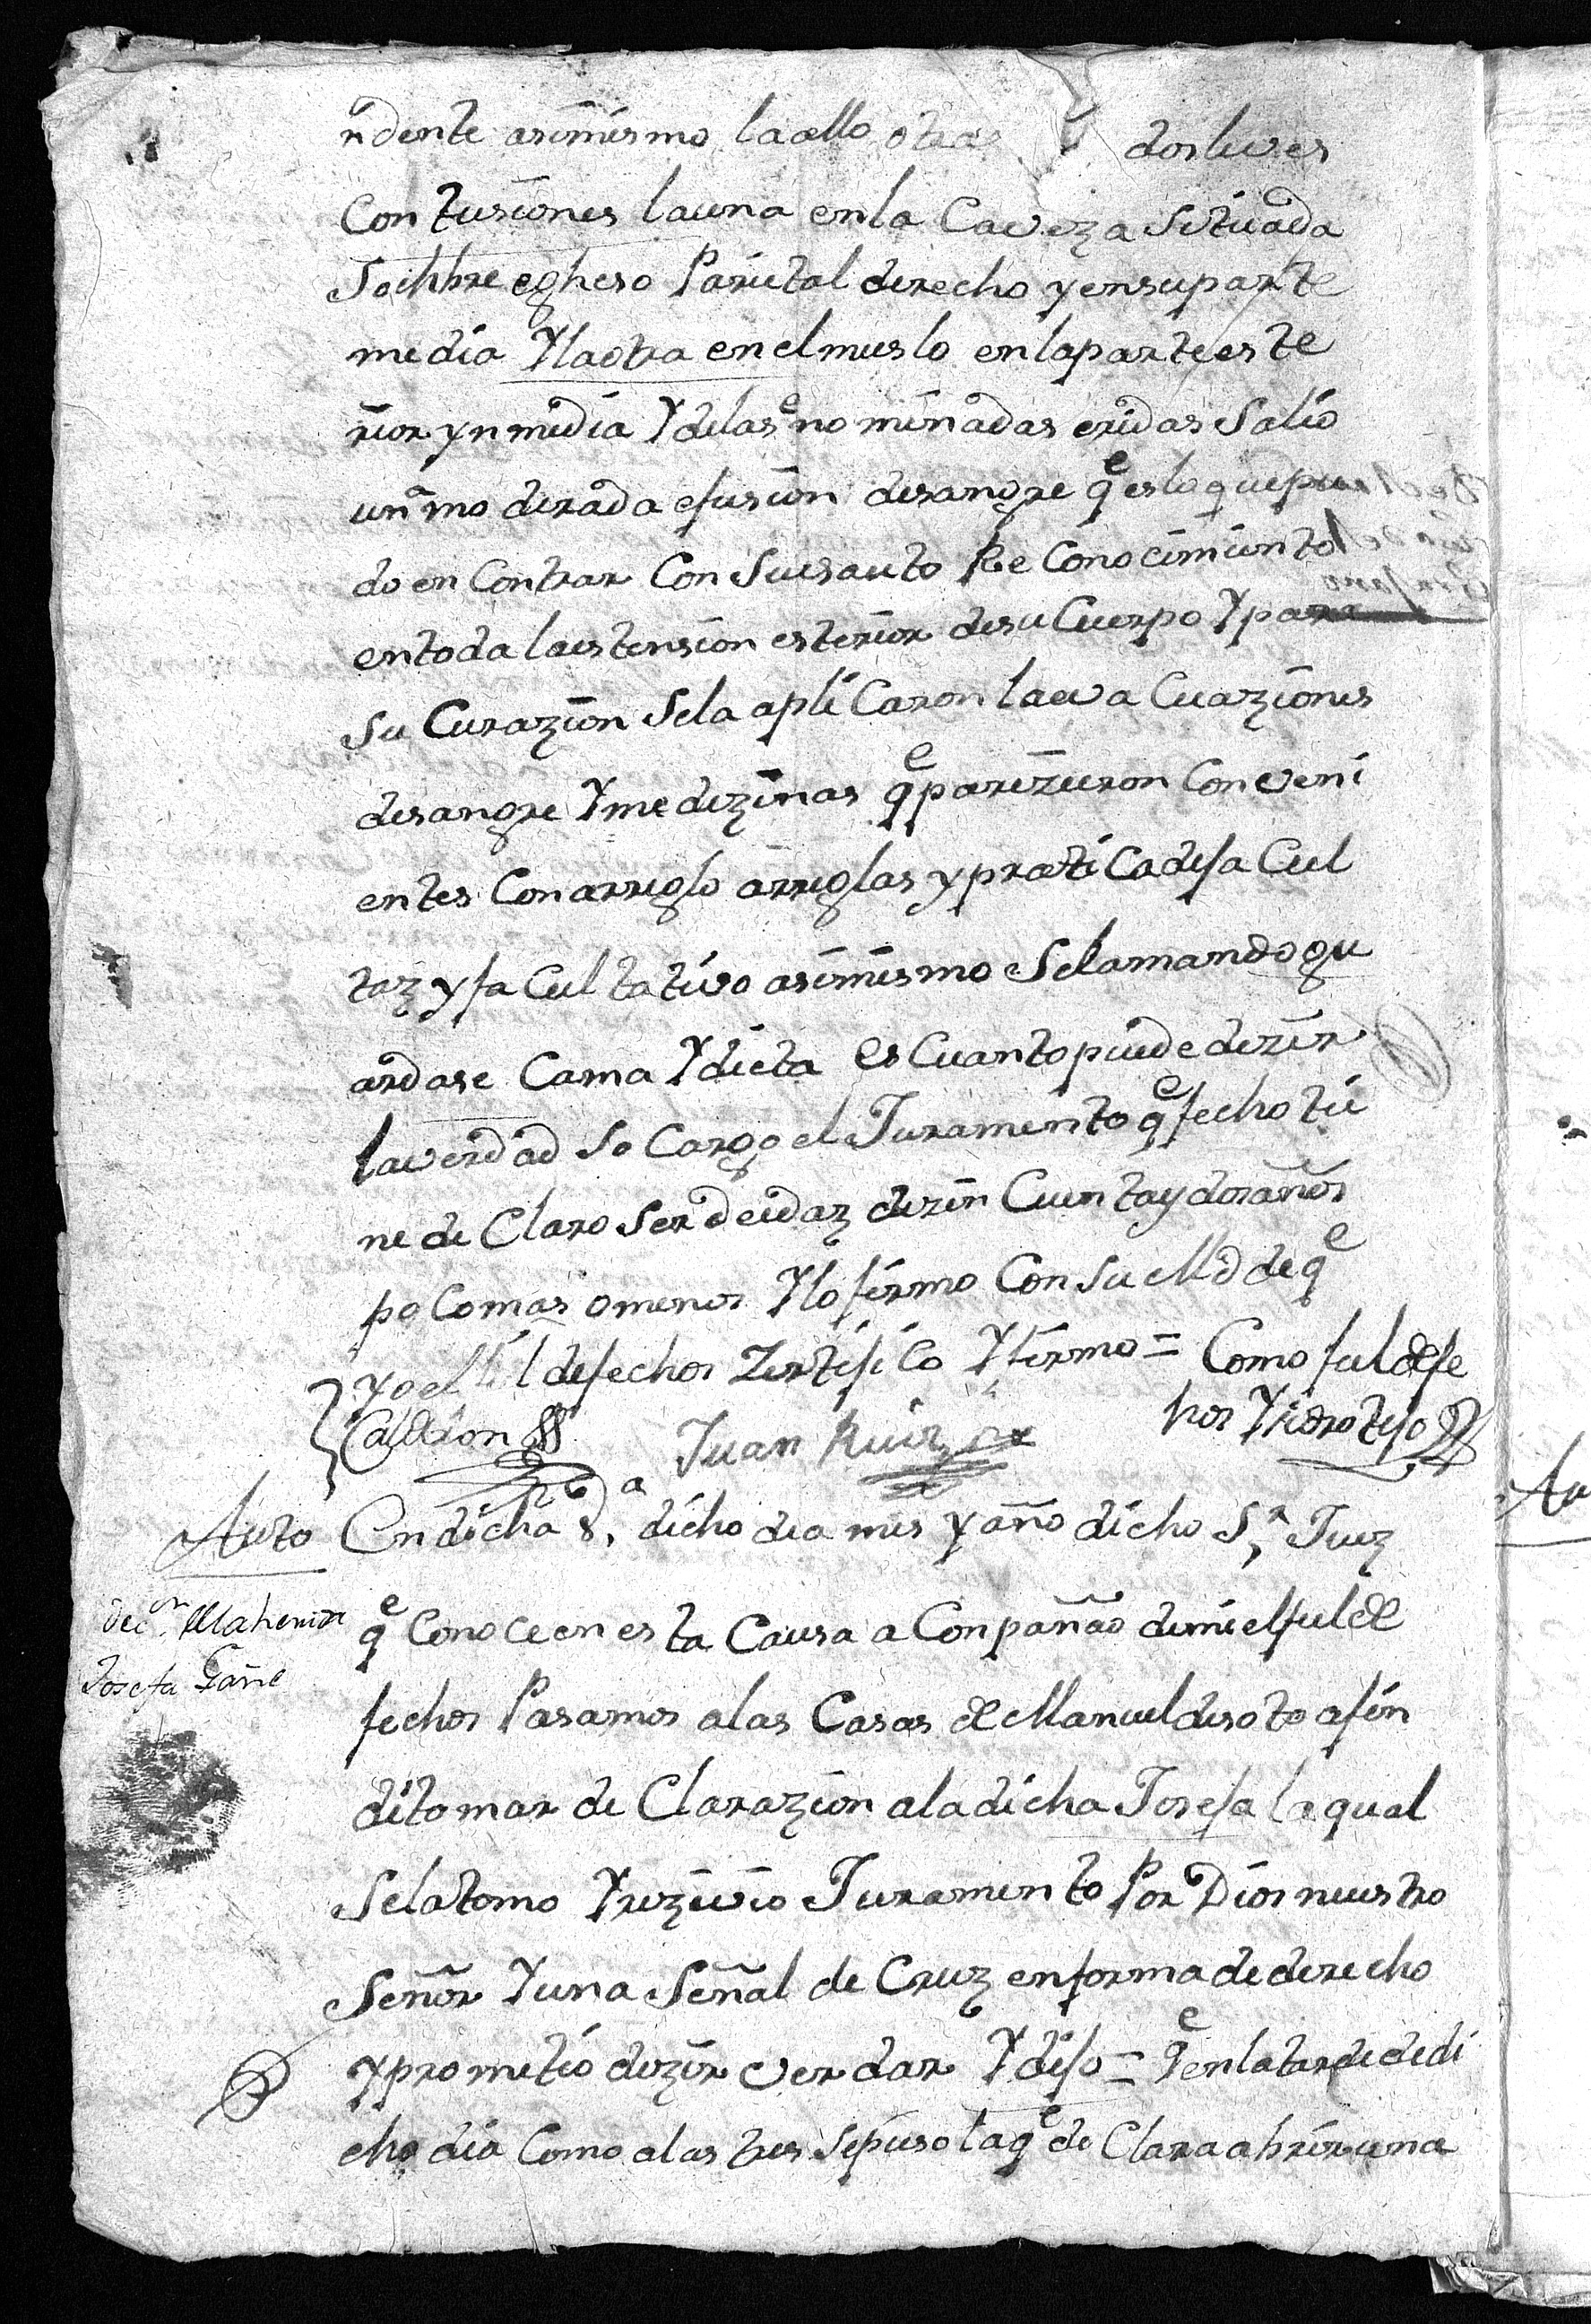 ndente asimismo la allo otras dos leves
Contusiones la una en la Caveza situada
Sobhre egheso Parietal derecho y en su parte
media Y la otra en el muslo en la parte este
rior yn media Y de las nominadas eridas Salio
una moderada efusion de sangre qe es lo que pu
do encontrar Con Su esauto ReConocimiento
en toda la estension esterior de su Cuerpo Y para
su Curazion Se la apliCaron la evaCuaziones
de sangre Y medizinas qe parezieron Conveni
entes Con arreglo arreglas y pratiCa de fa Cul
taz y faCultativo asimismo Se la mando gu
ardase Cama Y dieta es Cuanto puede dezir
la verdad so Cargo el Juramento qe fecho tie
ne deClaro ser de edaz de zin Cuenta y dos años
poComas o menos Y lo firmo Con su Md de qe
yo el fiel de fechos Zertifico Y firmo = Como fiel de fe
Calderon Juan Ruiz hos Ysidro Tejo
Auto En dicha Va dicho dia mes y año dicho Sr Juez
Decn. Mahenida
Josefa Gañe
qe Conoce en esta Causa aConpañado de mi el fiel de
fechos Pasamos a las Casas de Manuel de soto a fin
de tomar deClarazion a la dicha Josefa la qual
Se la tomo Y rezivio Juramento Por Dios nuestro
Señor Y una Señal de Cruz en forma de derecho
y prometio dezir verdar Y dijo = qe en la tarde de di
cho dia Como a las tres se puso la qe deClara a hrir una
Au